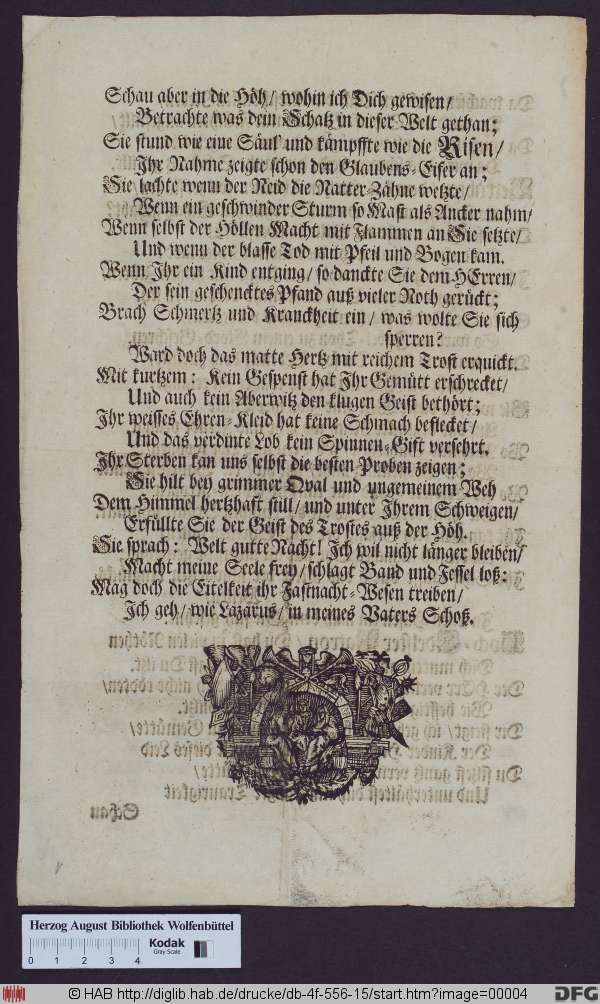 Schau aber in die Höh / wohin ich Dich gewisen /
Betrachte was dein Schatz in dieser Welt gethan;
Sie stund wie eine Säul' und kämpffte wie die Risen /
Ihr Nahme zeigte schon den Glaubens-Eifer an;
Sie lachte wenn der Neid die Natter-Zähne wetzte /
Wenn ein geschwinder Sturm so Mast als Ancker nahm /
Wenn selbst der Höllen Macht mit Flammen an Sie setzte /
Und wenn der blasse Tod mit Pfeil und Bogen kam.
Wenn Ihr ein Kind entging / so danckte Sie dem HErren /
Der sein geschencktes Pfand auß vieler Noth gerückt;
Brach Schmertz und Kranckheit ein / was wolte Sie sich
sperren?
Ward doch das matte Hertz mit reichem Trost erquickt.
Mit kurtzem: Kein Gespenst hat Ihr Gemütt erschrecket /
Und auch kein Aberwitz den klugen Geist bethört;
Ihr weisses Ehren-Kleid hat keine Schmach beflecket /
Und das verdinte Lob kein Spinnen-Gift versehrt.
Ihr Sterben kan uns selbst die besten Proben zeigen;
Sie hilt bey grimmer Qval und ungemeinem Weh
Dem Himmel hertzhaft still / und unter Ihrem Schweigen /
Erfüllte Sie der Geist des Trostes auß der Höh.
Sie sprach: Welt gutte Nacht! Ich wil nicht länger bleiben /
Macht meine Seele frey / schlagt Band und Fessel loß:
Mag doch die Eitelkeit ihr Fastnacht-Wesen treiben /
Ich geh / wie Lazarus / in meines Vaters Schoß.
Herzog August Bibliothek Wolfenbüttel
0 1 2 3 4
Kodak
Gray Scale
© HAB http://diglib.hab.de/drucke/db-4f-556-15/start.htm?image=00004
DFG